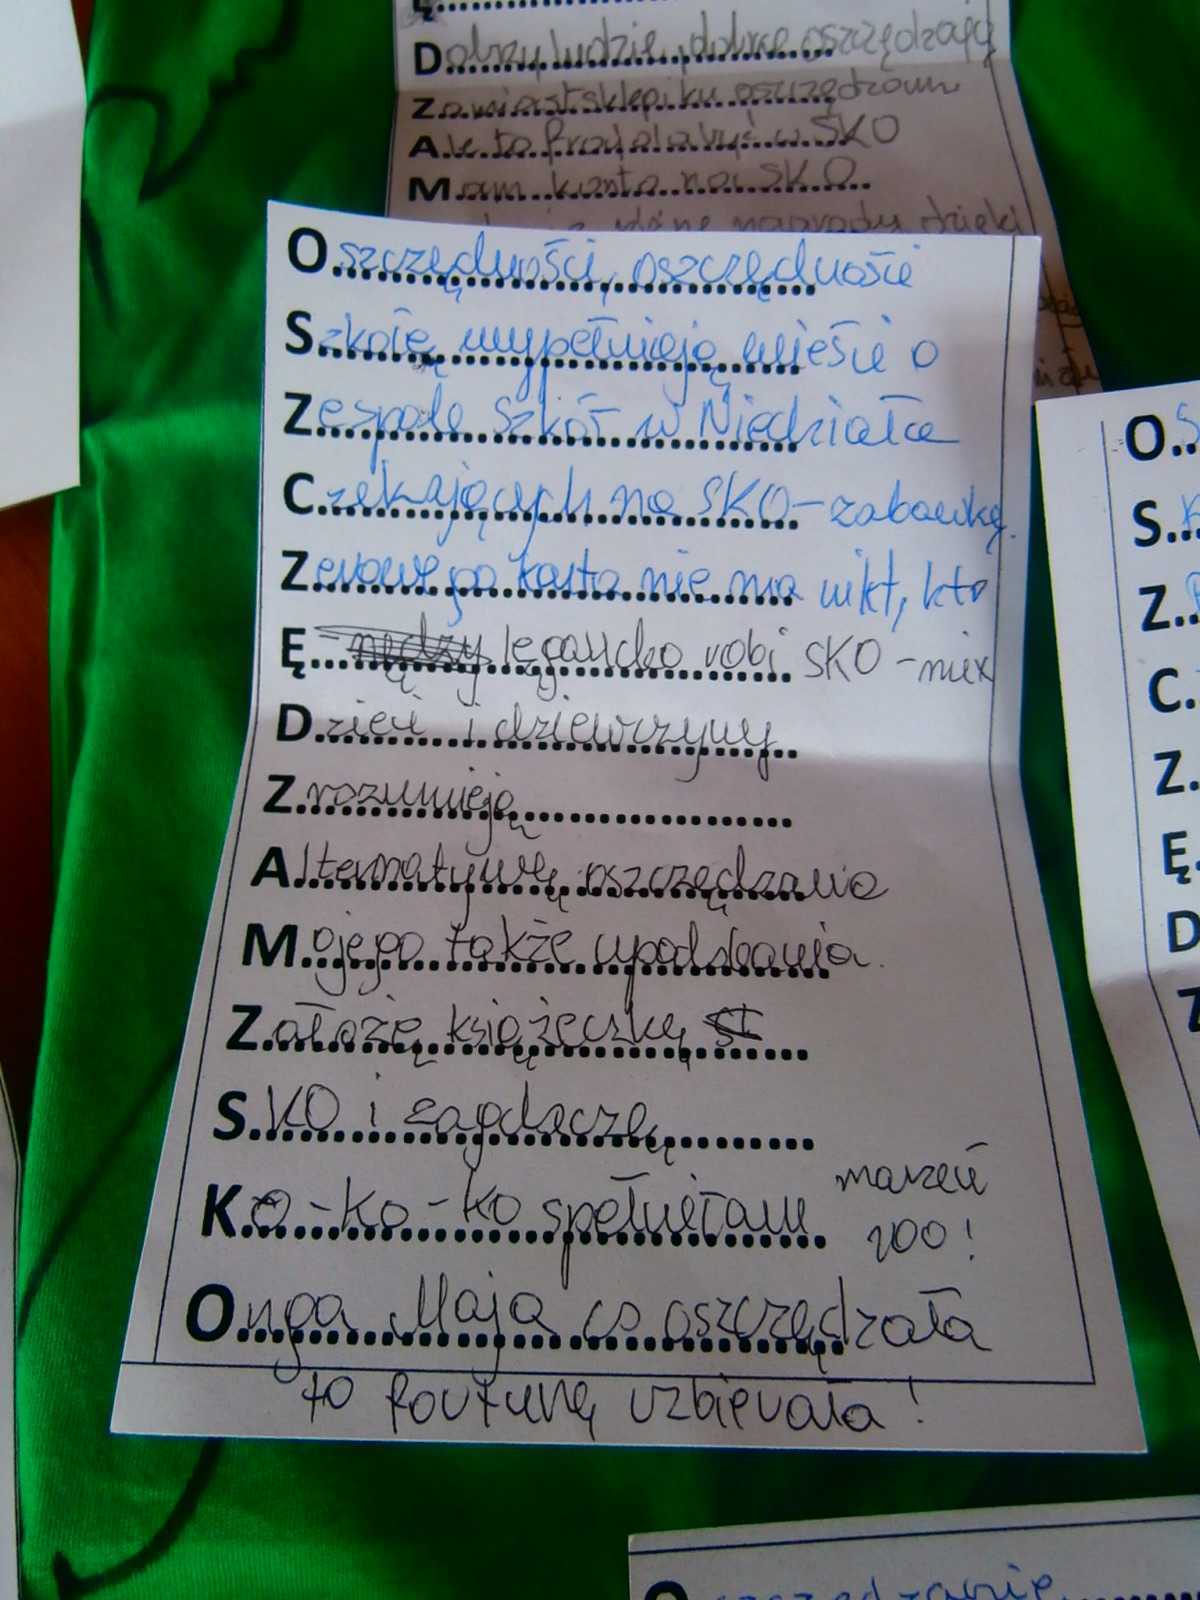 Ę
Dobrzy ludzie, dobrze oszczędzają
Zamiast sklepiku oszczędzam
Ale to
w SKO
Mam konto na SKO
nagrody dzięki
Oszczędności, oszczędności
Szkołę wypełniają wieście o
Zespole Szkół w Niedziałce
Czekających na SKO-zabawkę.
Zerowego konta nie ma nikt, kto
Ę-nędzy legancko robi SKO-mix
Dzieci i dziewczyny
Zrozumieją
Alternatywę oszczędzania
Mojego także upodobania.
Założę książeczkę
SKO i zagdaczę
Ko-ko-ko spełniałam marzeń
200!
Onga Maja co oszczędzała
to fortunę uzbierała!
O
S
Z
C
Z
Ę
D
Z
Oszczędzanie